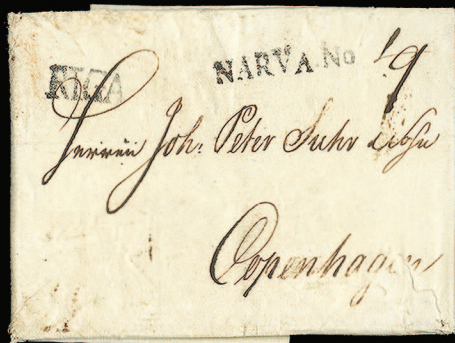 RIGA NARVA No 19
Herren Joh: Peter Suhr
Copenhagen